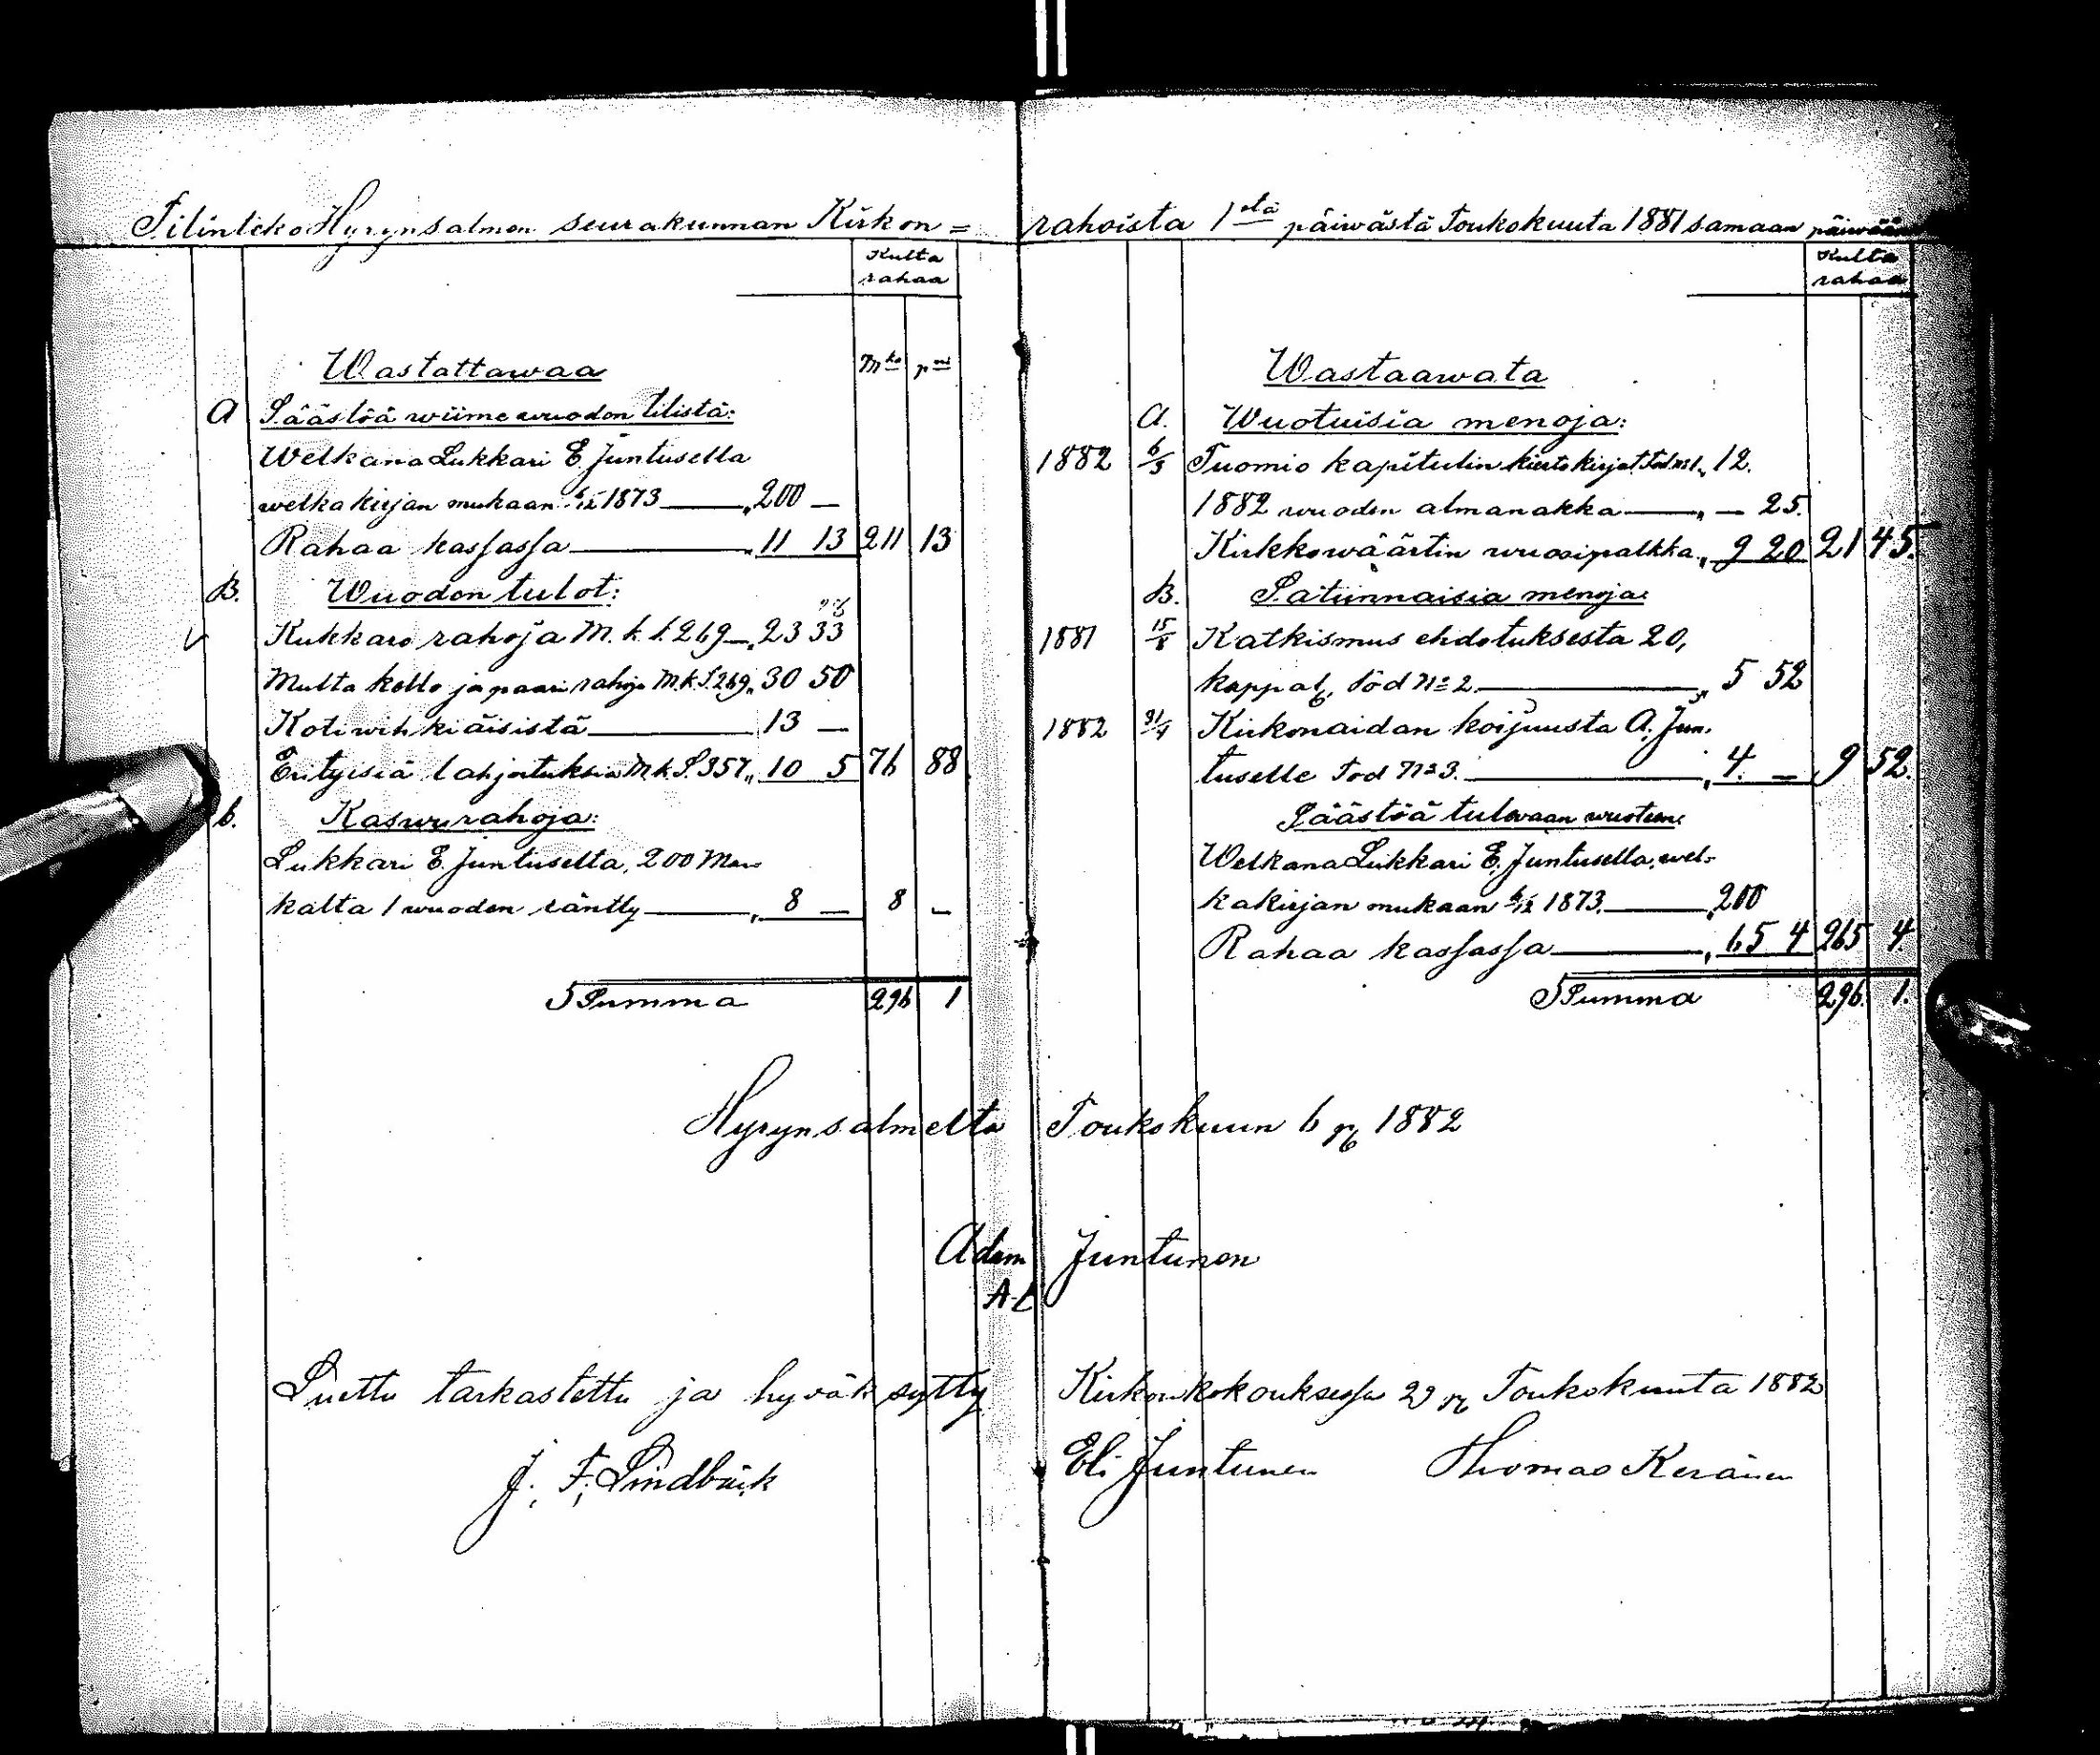 Tilinteko Hyrynsalmen seurakunnan Kirkon=
Kulta
rahaa
Wastattawaa Mka pnä
A Säästöä wiime wuoden tilistä:
Welkana Lukkari E. Juntusella
welkakirjan mukaan 6/12 1873 „ 200 —
Rahaa kassassa „ 11 13 211 13
B. Wuoden tulot:
Kukkaro rahoja M. k. S. 269 „ 23 33
Multa kello ja paari rahoja M. k. S. 269 „ 30 50
Kotiwihkiäisistä 13 —
Erityisiä lahjoituksia M. k. S. 357 „ 10 5 76 88
b. Kaswurahoja:
Lukkari E. Juntuselta, 200 Mar-
kalta 1 wuoden räntty „ 8 — 8 —
Summa 296 1
rahoista 1stä päiwästä Toukokuuta 1881 samaan päiwään
Kulta
rahaa
Wastaawata
A. Wuotuisia menoja:
1882 6/3 Tuomio kapitulin kiertokirjat Tod. No 1 „ 12.
1882 wuoden almanakka „ — 25.
Kirkkowäärtin wuosipalkka „ 9 20 21 45.
B. Satunnaisia menoja:
1881 15/8 Katkismus ehdotuksesta 20,
kappal. Tod No 2 „ 5 52
1882 31/4 Kirkonaidan korjuusta A. Jun-
tuselle Tod No 3. „ 4. — 9 52.
Säästöä tulewaan wuoteen:
Welkana Lukkari E. Juntusella, wel-
kakirjan mukaan 6/12 1873. „ 200
Rahaa kassassa „ 65 4 265 4.
Summa 296. 1.
Hyrynsalmelta Toukokuun 6 p 1882
Adam Juntunen
Luettu tarkastettu ja hyväksytty Kirkonkokouksessa 29 p Toukokuuta 1882
J. F. Lindbäck Eli Juntunen Thomas Keränen